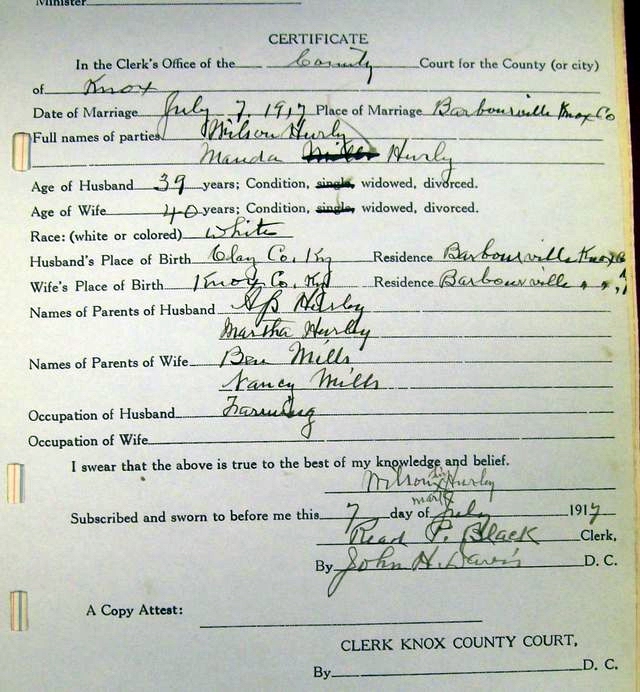 Minister
CERTIFICATE
In the Clerk's Office of the County Court for the County (or city)
of Knox
Date of Marriage July 7, 1917 Place of Marriage Barbourville Knox Co
Full names of parties Wilson Hurly
Manda Mills Hurly
Age of Husband 39 years; Condition, single, widowed, divorced.
Age of Wife 40 years; Condition, single, widowed, divorced.
Race: (white or colored) White
Husband's Place of Birth Clay Co, Ky Residence Barbourville Knox Co
Wife's Place of Birth Knox Co, Ky Residence Barbourville " " "
Names of Parents of Husband Hurley
Martha Hurley
Names of Parents of Wife Ben Mills
Nancy Mills
Occupation of Husband Farming
Occupation of Wife
I swear that the above is true to the best of my knowledge and belief.
Wilson his Hurley
mark X
Subscribed and sworn to before me this 7 day of July 1917
Read P. Black Clerk,
By John H. Davis D. C.
A Copy Attest:
CLERK KNOX COUNTY COURT,
By D. C.